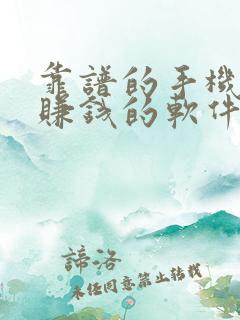 靠譜的手機
賺錢的軟件
諦洛
未經同意禁止轉載